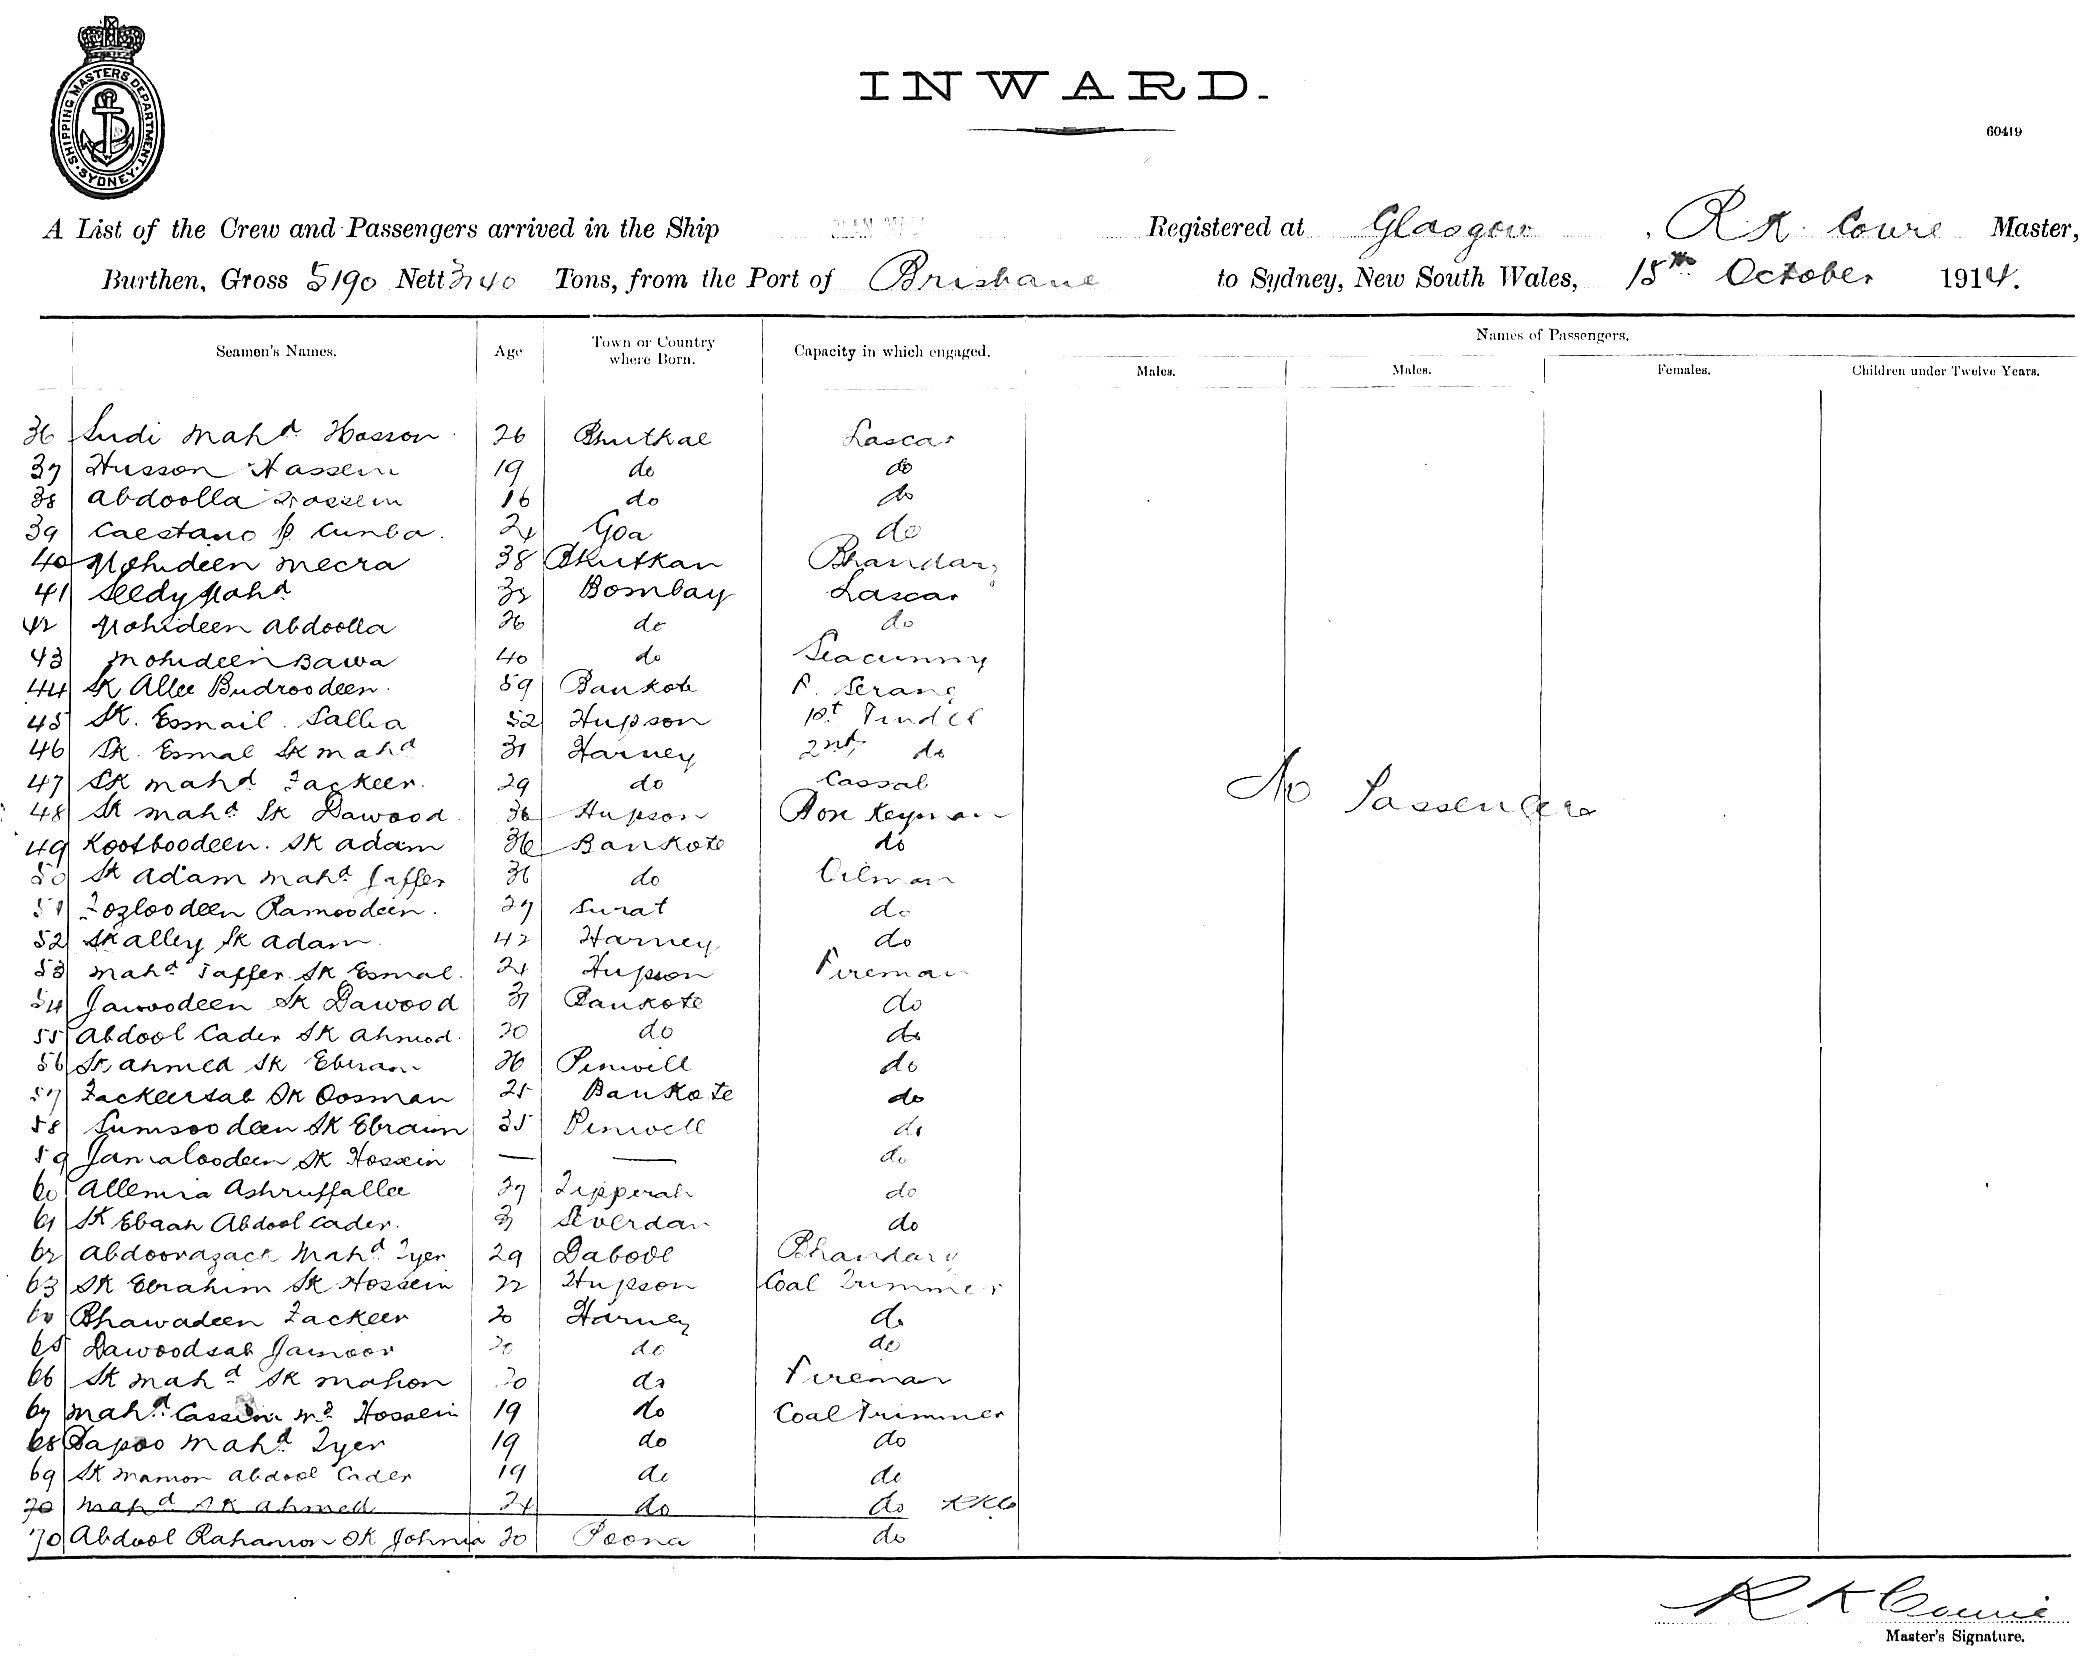 SHIPPING MASTERS DEPARTMENT. SYDNEY.
INWARD.
60419
A List of the Crew and Passengers arrived in the Ship Registered at Glasgow, R. K. Cowie Master,
Burthen, Gross 5190 Nett 3140 Tons, from the Port of Brisbane to Sydney, New South Wales, 15th October 1914.
Names of Passengers.
Seamen's Names. Age Town or Country where Born. Capacity in which engaged. Males. Males. Females. Children under Twelve Years.
36 Sudi Mahd Hasson 26 Bhutkal Lascar
37 Husson Hassein 19 do do
38 Abdoolla Hassein 16 do do
39 Caestano p. Cunba. 24 Goa do
40 Mohideen Meera 38 Bhutkan Bhandary
41 Seedy Mahd Bombay Lascar
42 Mohideen Abdoolla 26 do do
43 Mohideen Bawa 40 do Seacunny
44 Sk Allee Budroodeen. 59 Bankote F. Serang
45 Sk. Esmail. Sallia 52 Hupson 1st Tindel
46 Sk. Esmal Sk Mahd 31 Harney 2nd do
47 Sk Mahd Fackeer. 29 do Cassab
48 Sk Mahd Sk Dawood 36 Hupson
49 Kootboodeen. Sk Adam 36 Bankote do
50 Sk Adam Mahd Jaffer 36 do Oilman
51 Fozloodeen Ramoodeen. 27 Surat do
52 Sk Alley Sk Adam 42 Harney do
53 Mahd Jaffer Sk Esmal. 24 Hupson Fireman
54 Jawoodeen Sk Dawood 37 Bankote do
55 Abdool Cader Sk Ahmod. 20 do do
56 Sk Ahmed Sk Ebram 26 Pinwell do
57 Fackeersab Sk Oosman 25 Bankote do
58 Sumsoodeen Sk Ebraim 35 Pinwell do
59 Jamaloodeen Sk Hossein — — do
60 Allemia Ashruffallee 27 Tipperah do
61 Sk Ebaah Abdool Cader. Severdan do
62 Abdoorazack Mahd Tyer 29 Dabool Bhandary
63 Sk Ebrahim Sk Hossein 22 Hupson Coal Trimmer
64 Bhawadeen Fackeer 20 Harney do
65 Dawoodsab Jainoor 20 do do
66 Sk Mahd Sk Mahon 20 do Fireman
67 Mahd Cassim Md Hossein 19 do Coal Trimmer
68 Bapoo Mahd Tyer 19 do do
69 Sk Mamon Abdool Cader 19 do do
70 Mahd Sk Ahmed 24 do do RKC
70 Abdool Rahamon Sk Johnia 20 Poona do
No Passengers
R K Cowie
Master's Signature.